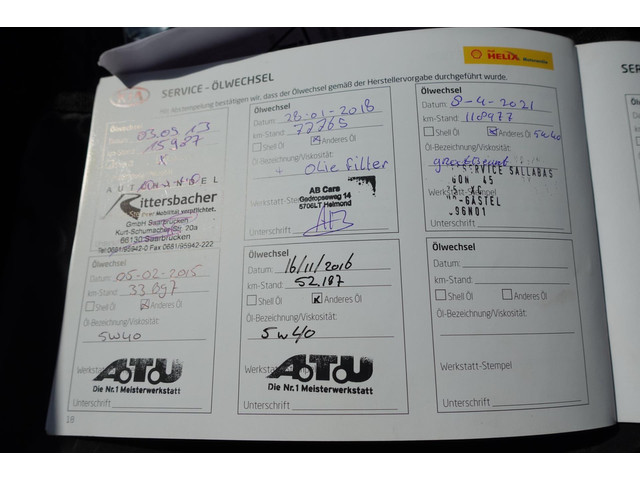 Shell HELIX Motorenöle
KIA SERVICE - ÖLWECHSEL
Mit Abstempelung bestätigen wir, dass der Ölwechsel gemäß der Herstellervorgabe durchgeführt wurde.
Ölwechsel
03.09.13
15927
x
AUTOHANDEL
Rittersbacher
Ihrer Mobilität verpflichtet.
GmbH Saarbrücken
Kurt-Schumacher 20a
66130 Saarbrücken
Tel 0681/95942-0 Fax 0681/95942-222
Ölwechsel
Datum: 28-01-2018
km-Stand: 77765
Shell Öl Anderes Öl
Öl-Bezeichnung/Viskosität:
+ Olie filter
AB Cars
Gedropseweg 14
5706LT Helmond
Werkstatt-Stempel
Unterschrift AB
Ölwechsel
Datum: 8-4-2021
km-Stand: 118977
Shell Öl Anderes Öl 5W40
Öl-Bezeichnung/Viskosität:
SERVICE SALLABAS
45
Werkstatt-Stempel
-GASTEL
-96N01
Unterschrift
Ölwechsel
Datum: 05-02-2015
km-Stand: 33697
Shell Öl Anderes Öl
Öl-Bezeichnung/Viskosität:
5W40
Werkstatt
A.T.U
Die Nr.1 Meisterwerkstatt
Unterschrift
Ölwechsel
Datum: 16/11/2016
km-Stand: 52.187
Shell Öl Anderes Öl
Öl-Bezeichnung/Viskosität:
5W40
A.T.U
Die Nr.1 Meisterwerkstatt
Unterschrift
Ölwechsel
Datum:
km-Stand:
Shell Öl Anderes Öl
Öl-Bezeichnung/Viskosität:
Werkstatt-Stempel
Unterschrift
18
SER